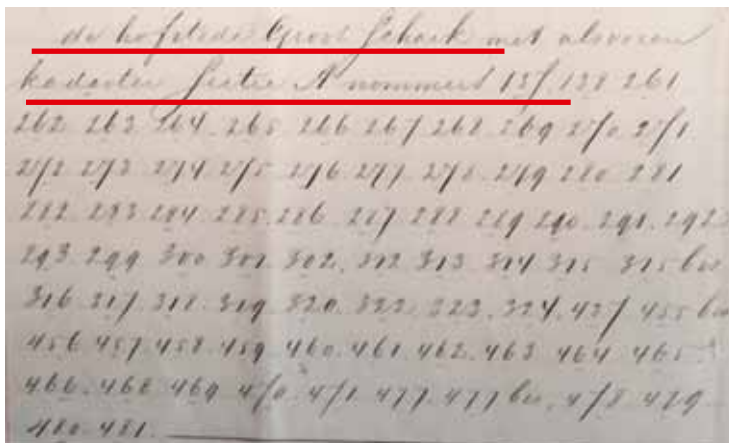 de hofstede Groot Schaik met alsvoren
kadaster Sectie A nommers 137. 138 261
262. 263. 264. 265. 266. 267. 268. 269. 270. 271
272 273. 274. 275. 276. 277. 278. 279 280 281
282. 283 284. 285. 286. 287. 288. 289 290. 291. 292
293. 299 300 301. 302. 312 313 314 315 315 bis
316. 317. 318. 319 320. 322. 323. 324. 437 455 bis
456 457. 458. 459 460. 461. 462. 463 464 465
466. 468 469 470. 471. 477. 477 bis. 478 479
480. 481.